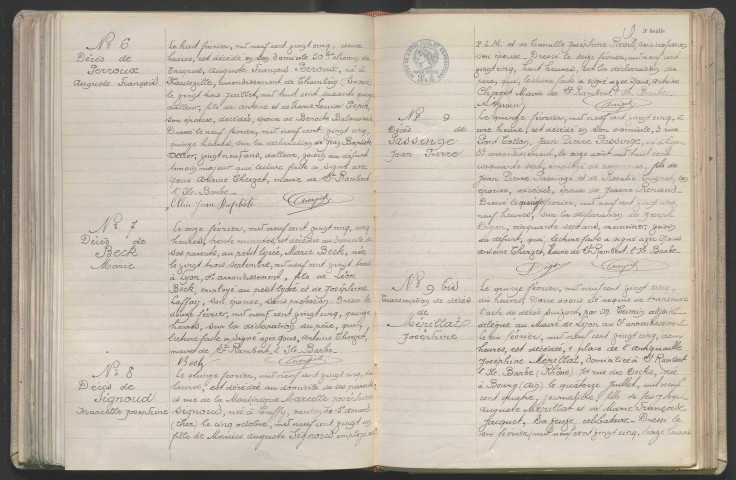 N° 6
Décès de
Perroux
Auguste François
Le huit février, mil neuf cent vingt cinq, deux
heures, est décédé en son domicile 30
Jacques, Auguste François Perroux, né à
Hauteville, arrondissement de Chambéry (Savoie)
le vingt huit juillet, mil huit cent soixante quinze
tailleur, fils de Antoine et de Marie Louise Pépin
son épouse, décédés, époux de Benoite
Dressé le neuf février, mil neuf cent vingt cinq,
quinze heures, sur la déclaration de Jean Baptiste
vingt neuf ans, tailleur, voisin du défunt
témoin majeur qui lecture faite a signé avec
nous Antoine Chepget, maire de St Rambert
l'Ile Barbe
Jean Baptiste
N° 7
Décès de
Beck
Marie
Le onze février, mil neuf cent vingt cinq, cinq
heures, trente minutes, est décédée au domicile de
ses parents, au petit lycée, Marie Beck, née
le vingt trois septembre, mil neuf cent vingt trois
à Lyon, arrondissement, fille de Léon
Beck, employé au petit lycée et de Joséphine
Laffay, son épouse, sans profession. Dressé le
douze février, mil neuf cent vingt cinq, quinze
heures, sur la déclaration du père, qui,
lecture faite a signé avec nous, Antoine Chepget,
maire de St Rambert l'Ile Barbe
Beck
N° 8
Décès de
Signoud
Marcelle Joséphine
Le quinze février, mil neuf cent vingt cinq,
heures, est décédée au domicile de ses parents,
rue de la Marcelle Joséphine
Signoud, née à Cuffy, canton de
(Cher) le cinq octobre, mil neuf cent vingt
fille de Marius Auguste Signoud employé au
3e feuille
P.L.M. et de Camille Joséphine sans profession
son épouse. Dressé le seize février, mil neuf cent
vingt cinq, huit heures, sur la déclaration du
père, qui, lecture faite a signé avec nous, Antoine
Chepget Maire de St Rambert l'Ile Barbe
N° 9
Décès de
Passenge
Jean Pierre
Le quinze février, mil neuf cent vingt cinq, à
une heure, est décédé en son domicile, 3 rue
Pont Cotton, Jean Pierre Passinge, né à Lyon
arrondissement, le onze août mil huit cent
cinquante sept, fils de
Jean Pierre Passinge et de Rosalie son
épouse, décédés, époux de Jeanne Renaud.
Dressé le quinze février, mil neuf cent vingt cinq,
neuf heures, sur la déclaration de Joseph
cinquante sept ans, menuisier, voisin
du défunt, qui, lecture faite a signé avec nous
Antoine Chepget, Maire de St Rambert l'Ile Barbe
N° 9 bis
Transcription de décès
de
Mépillat
Joséphine
Le quinze février, mil neuf cent vingt cinq,
heures nous avons été requis de transcrire
l'acte de décès suivant, par Mr Cumin adjoint
délégué au Maire de Lyon au 5e arrondissement
Le dix février, mil neuf cent vingt cinq,
heures, est décédée, 1 place de l'antiquaille
Joséphine Mépillat, domiciliée à St Rambert
l'Ile Barbe (Rhône) rue des Docks, née
à Bourg (Ain) le quatorze juillet, mil neuf
cent quatre, journalière, fille de
Auguste Mépillat et de Marie Françoise
Jacquet, célibataire. Dressé le
février, mil neuf cent vingt cinq, seize heures